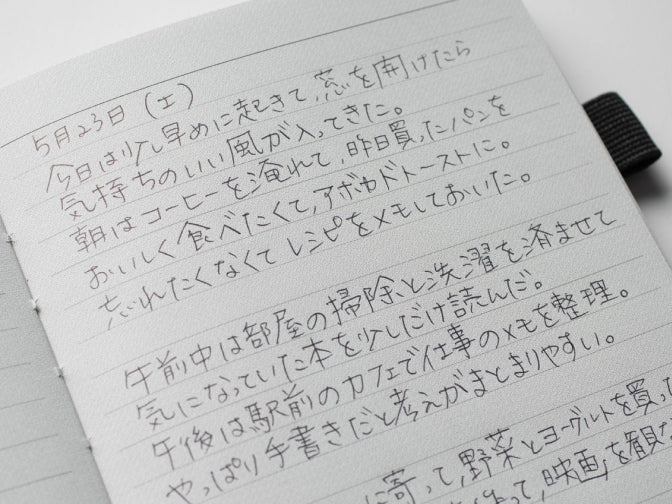 5月23日(土)
今日は少し早めに起きて、窓を開けたら
気持ちのいい風が入ってきた。
朝はコーヒーを淹れて、昨日買ったパンを
おいしく食べたくて、アボカドトーストに。
忘れたくなくてレシピをメモしておいた。
午前中は部屋の掃除と洗濯を済ませて
気になっていた本を少しだけ読んだ。
午後は駅前のカフェで仕事のメモを整理。
やっぱり手書きだと考えがまとまりやすい。
に寄って、野菜とヨーグルトを買った
って、映画を観